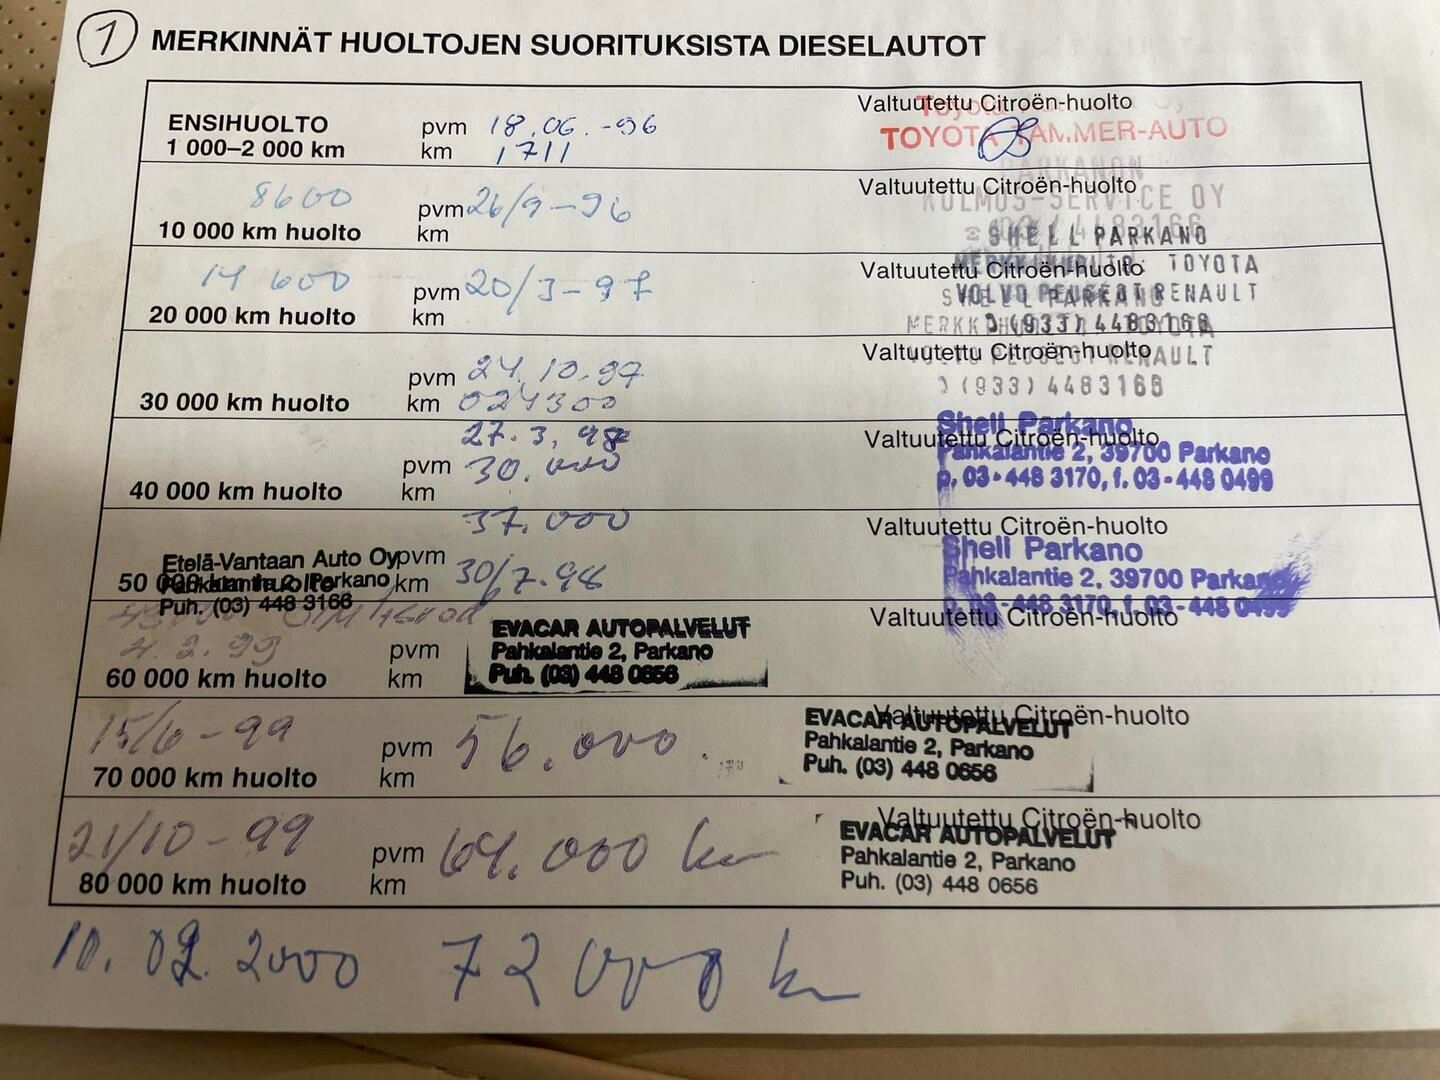 1 MERKINNÄT HUOLTOJEN SUORITUKSISTA DIESELAUTOT
Valtuutettu Citroën-huolto
ENSIHUOLTO pvm 18.06.-96
TOYOTA TAMMER-AUTO
1 000–2 000 km km 1711
PARKANON
8600 Valtuutettu Citroën-huolto
KOLMOS-SERVICE OY
pvm 26/9-96
10 000 km huolto km
SHELL PARKANO
14 600 Valtuutettu Citroën-huolto
TOYOTA
pvm 20/3-97
VOLVO PEUGEOT RENAULT
SHELL PARKANO
20 000 km huolto km
(933) 4483166
Valtuutettu Citroën-huolto
RENAULT
pvm 24.10.97
(933) 4483166
30 000 km huolto km 024300
Shell Parkano
27.3.98 Valtuutettu Citroën-huolto
Pahkalantie 2, 39700 Parkano
pvm 30.000
p. 03-448 3170, f. 03-448 0499
40 000 km huolto km
37.000 Valtuutettu Citroën-huolto
Shell Parkano
Etelä-Vantaan Auto Oy pvm
Pahkalantie 2, 39700 Parkano
50 000 km huolto km 30/7.98
Pahkalantie 2, Parkano
Puh. (03) 448 3166
p. 03-448 3170, f. 03-448 0499
Valtuutettu Citroën-huolto
EVACAR AUTOPALVELUT
4.2.99 pvm Pahkalantie 2, Parkano
60 000 km huolto km Puh. (03) 448 0656
Valtuutettu Citroën-huolto
EVACAR AUTOPALVELUT
15/6-99 pvm 56.000.
Pahkalantie 2, Parkano
70 000 km huolto km
Puh. (03) 448 0656
Valtuutettu Citroën-huolto
EVACAR AUTOPALVELUT
21/10-99 pvm 64.000 km
Pahkalantie 2, Parkano
80 000 km huolto km
Puh. (03) 448 0656
10.02.2000 72 000 km